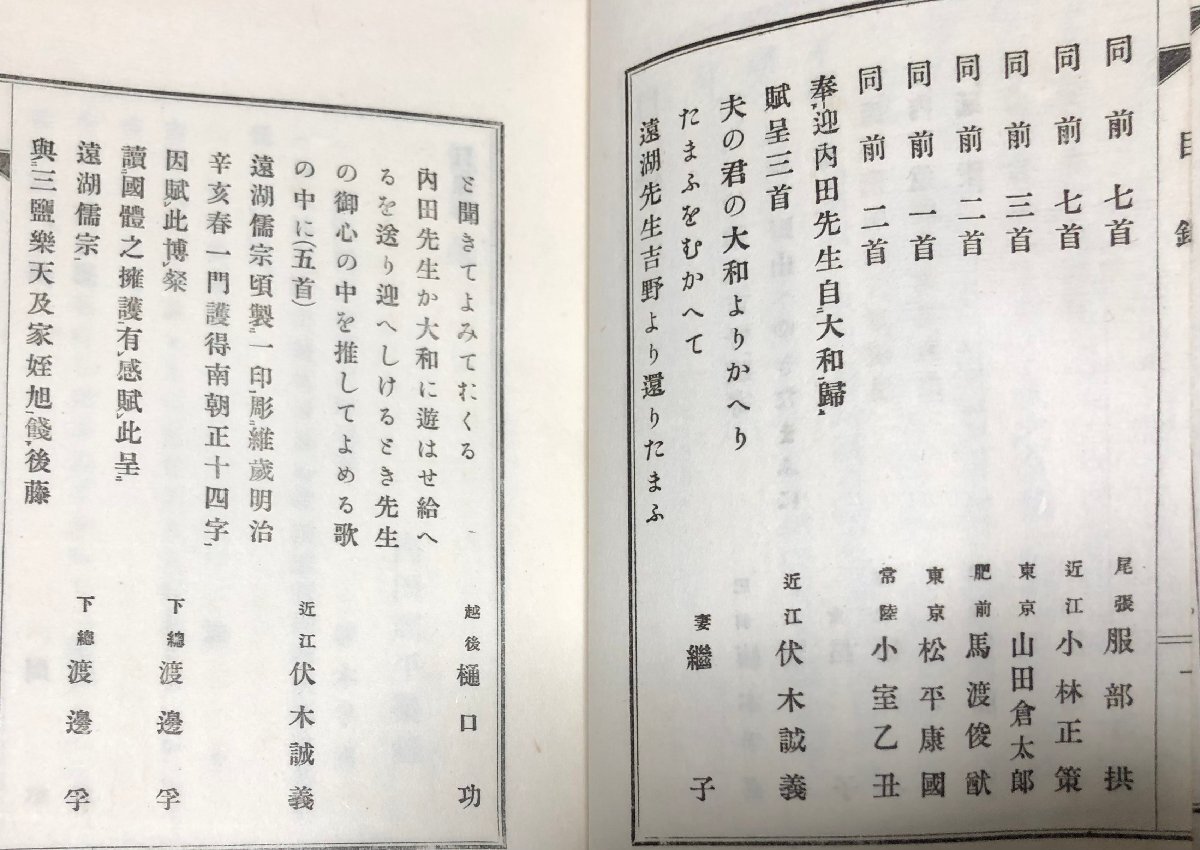 目錄
一
同前七首 尾張 服部拱
同前七首 近江 小林正策
同前三首 東京 山田倉太郎
同前二首 肥前 馬渡俊猷
同前一首 東京 松平康國
同前二首 常陸 小室乙丑
奉迎內田先生自大和歸
賦呈三首 近江 伏木誠義
夫の君の大和よりかへり
たまふをむかへて 妻 繼子
遠湖先生吉野より還りたまふ
と聞きてよみておくる 越後 樋口功
內田先生か大和に遊はせ給へ
るを送り迎へしけるとき先生
の御心の中を推してよめる歌
の中に(五首) 近江 伏木誠義
遠湖儒宗頃製一印彫維歲明治
辛亥春一門護得南朝正十四字
因賦此博粲 下總 渡邊孚
讀國體之擁護有感賦此呈
遠湖儒宗 下總 渡邊孚
與三鹽樂天及家姪旭餞後藤